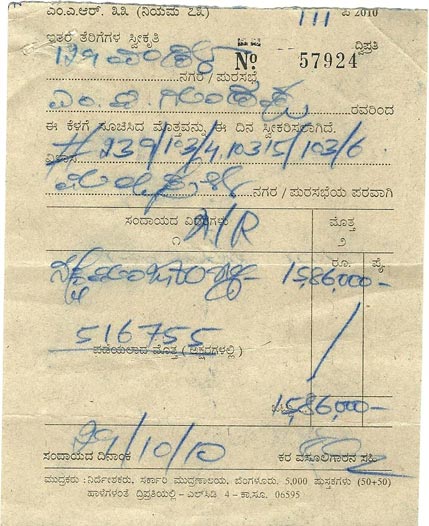 ಎಂ.ಎ.ಆರ್. ೩೩ (ನಿಯಮ ೭೩) III ಪಿ 2010
ಇತರೆ ತೆರಿಗೆಗಳ ಸ್ವೀಕೃತಿ ದ್ವಿಪ್ರತಿ
No. 57924
ನಗರ / ಪುರಸಭೆ
ರವರಿಂದ
ಈ ಕೆಳಗೆ ಸೂಚಿಸಿದ ಮೊತ್ತವನ್ನು ಈ ದಿನ ಸ್ವೀಕರಿಸಲಾಗಿದೆ.
# 239/193/4,10315/193/6
ನಗರ / ಪುರಸಭೆಯ ಪರವಾಗಿ
ಸಂದಾಯದ ವಿವರಗಳು ಮೊತ್ತ
೧ A/R ೨
ರೂ. ಪೈ.
15,86,000-
516755
ಪಡೆಯಲಾದ ಮೊತ್ತ ( ಅಕ್ಷರಗಳಲ್ಲಿ )
15,86,000-
29/10/10
ಸಂದಾಯದ ದಿನಾಂಕ ಕರ ವಸೂಲಿಗಾರನ ಸಹಿ
ಮುದ್ರಕರು : ನಿರ್ದೇಶಕರು, ಸರ್ಕಾರಿ ಮುದ್ರಣಾಲಯ, ಬೆಂಗಳೂರು. 5,000 ಪುಸ್ತಕಗಳು (50+50)
ಹಾಳೆಗಳಂತೆ ದ್ವಿಪ್ರತಿಯಲ್ಲಿ – ಎಲ್‌ಸಿಡಿ 4 – ಕಾ.ಸೂ. 06595